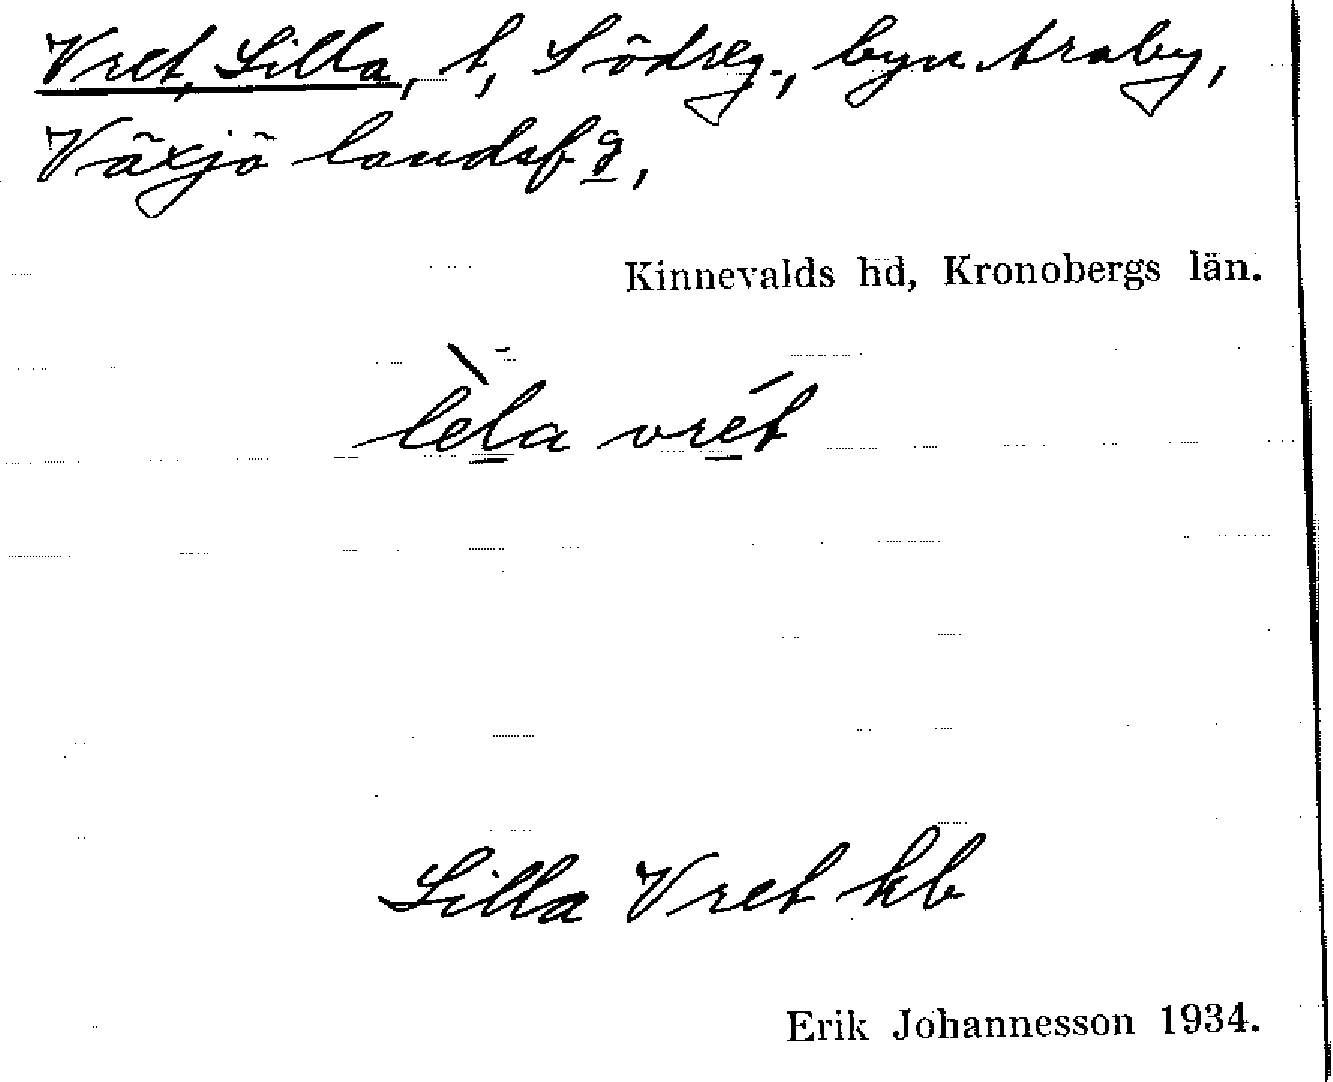 Vret, Lilla, t, Södreg., byn Araby,
Växjö landsfg,
Kinnevalds hd, Kronobergs län.
lèla vrét
Lilla Vret kb
Erik Johannesson 1934.